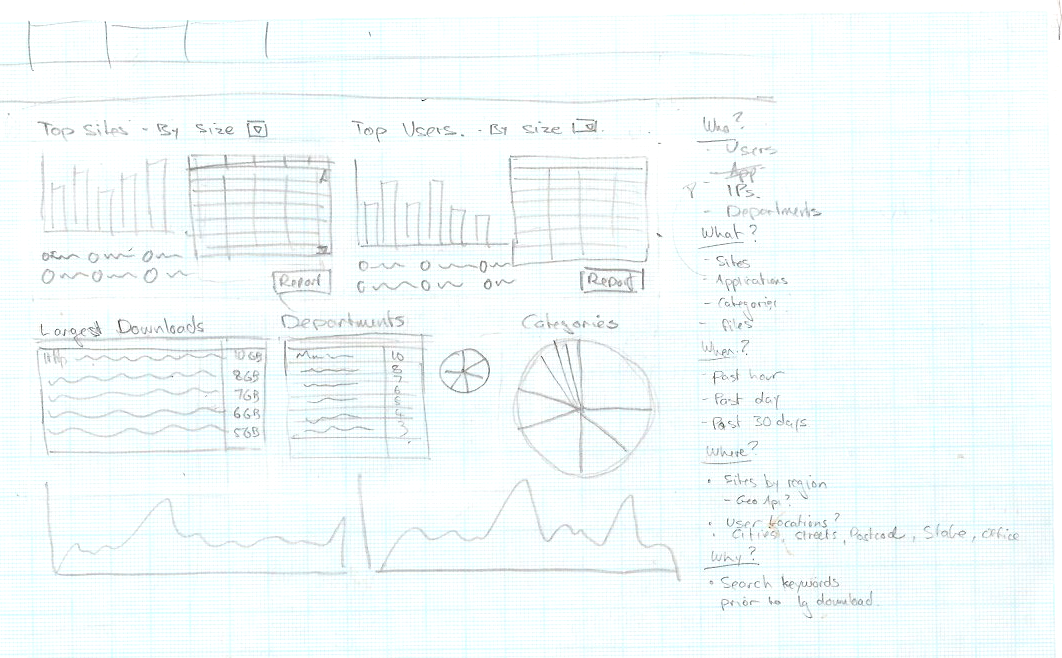 Top Sites - By Size
Top Users. - By size
Report
Report
Largest Downloads
Departments
Categories
Http
10GB
8GB
7GB
6GB
5GB
10
8
7
6
5
4
3
Who?
- Users
- App
- IPs.
- Departments
What?
- Sites
- Applications
- Categories
- Files
When?
- Past hour
- Past day
- Past 30 days
Where?
• Sites by region
- Geo Api?
• User Locations?
• Cities, streets, Postcode, State, office
Why?
• Search keywords
prior to lg download.